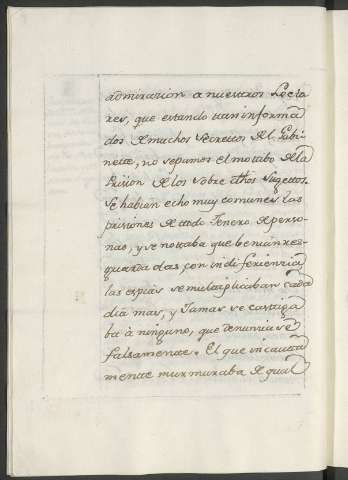 admirazion a nuestros Lecto
res, que estando tan informa
dos de muchos secretos del Gabi-
nette, no sepamos el motibo de la
Prision de los sobre dhos Sugettos.
Se habian echo muy comunes las
prisiones de ttodo Jenero de perso-
nas, y se nottaba que benian res-
guarda das con indiferienzia,
las espias se multiplicaban cada
dia mas, y Jamas se castiga
ba à ninguno, que denunciase
falsamente. El que incautta
mente murmuraba de qual